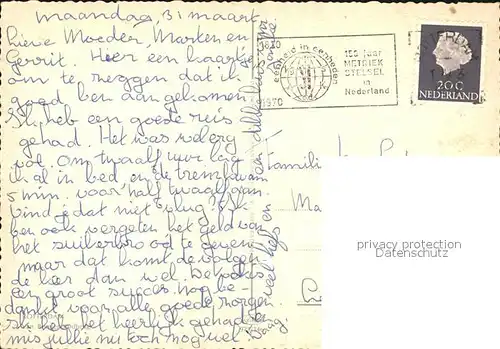 maandag, 31 maart
lieve Moeder, Marten en
Gerrit. Hier een kaartje
om te zeggen dat ik
goed ben aangekomen.
Ik heb een goede reis
gehad. Het was
vol. Om twaalf uur lag
ik al in bed en de trein kwam
5 min. voor half twaalf aan.
Vind je dat niet vlug? Ik
ben ook vergeten het geld van
het suikerbrood te geven
maar dat komt de volgen-
de keer dan wel.
een groot succes nog be-
dankt voor alle goede zorgen.
Ik heb het heerlijk gehad
mis jullie nu toch nog wel.
veel liefs en een dikke kus van
1820
1970
eenheid in eenheden
150 jaar
METRIEK
STELSEL
in
Nederland
20c
NEDERLAND
Familie
Ma
privacy protection
Datenschutz